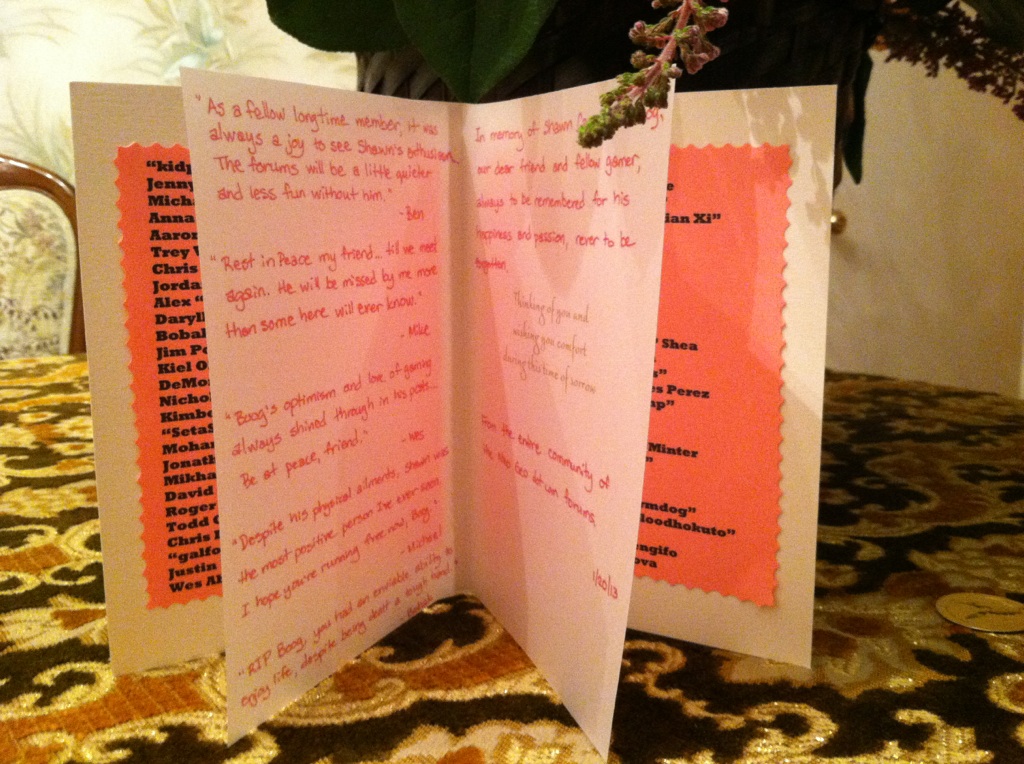 "kidp
Jenny
Micha
Anna
Aaron
Trey
Chris
Jorda
Alex "
Daryll
Bobal
Jim Pe
Kiel O
DeMo
Nicho
Kimbe
"SetaS
Moha
Jonath
Mikha
David
Roger
Todd
Chris
"galfo
Justin
Wes Al
"As a fellow longtime member, it was
always a joy to see Shawn's enthusiasm.
The forums will be a little quieter
and less fun without him."
- Ben
"Rest in Peace my friend... till we meet
again. He will be missed by me more
than some here will ever know."
- Mike
"Boog's optimism and love of gaming
always shined through in his posts...
Be at peace, friend."
- Wes
"Despite his physical ailments, Shawn was
the most positive person I've ever seen.
I hope you're running free now, Boog."
- Michael
"RIP Boog, you had an enviable ability to
enjoy life, despite being dealt a tough hand."
In memory of Shawn
our dear friend and fellow gamer,
always to be remembered for his
happiness and passion, never to be
forgotten.
Thinking of you and
wishing you comfort
during this time of sorrow
From the entire community of
the forums.
1/20/13
e
ian Xi"
Shea
s"
s Perez
mp"
Minter
"
rmdog"
loodhokuto"
ngifo
ova